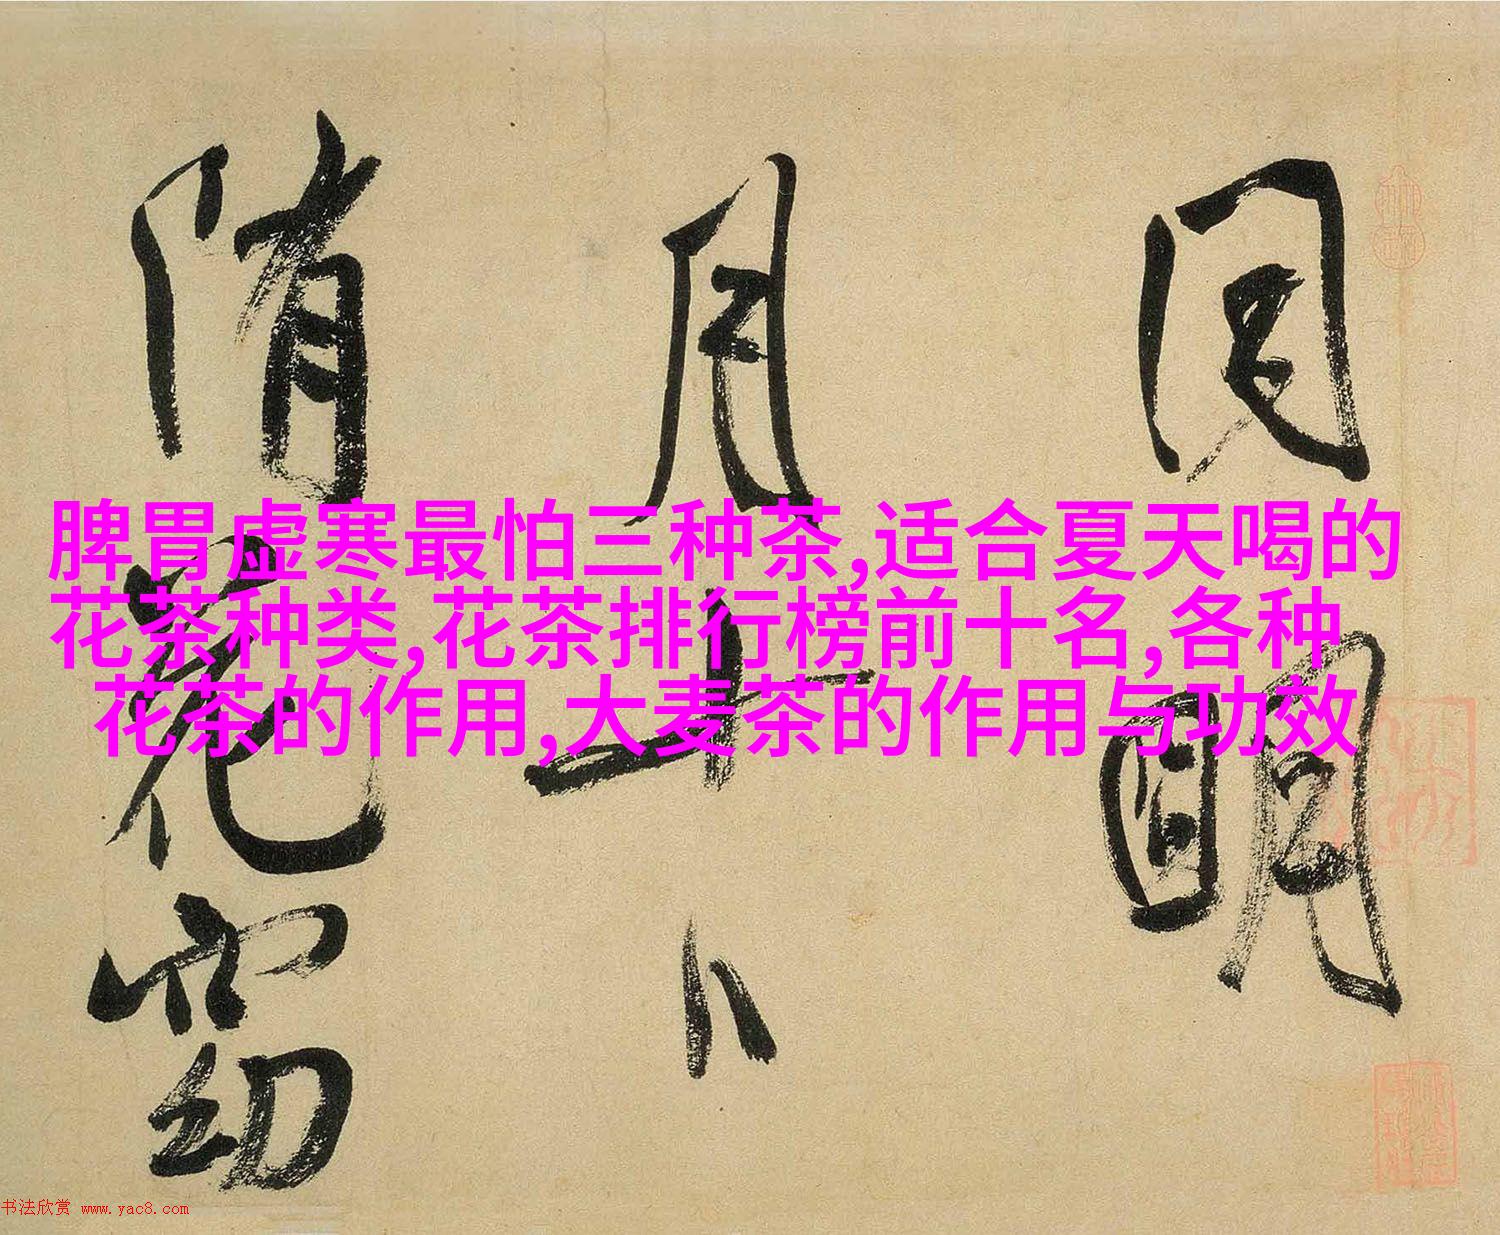 脾胃虚寒最怕三种茶,适合夏天喝的
花茶种类,花茶排行榜前十名,各种
花茶的作用,大麦茶的作用与功效
明
月十八
花
书法欣赏 www.yac8.com